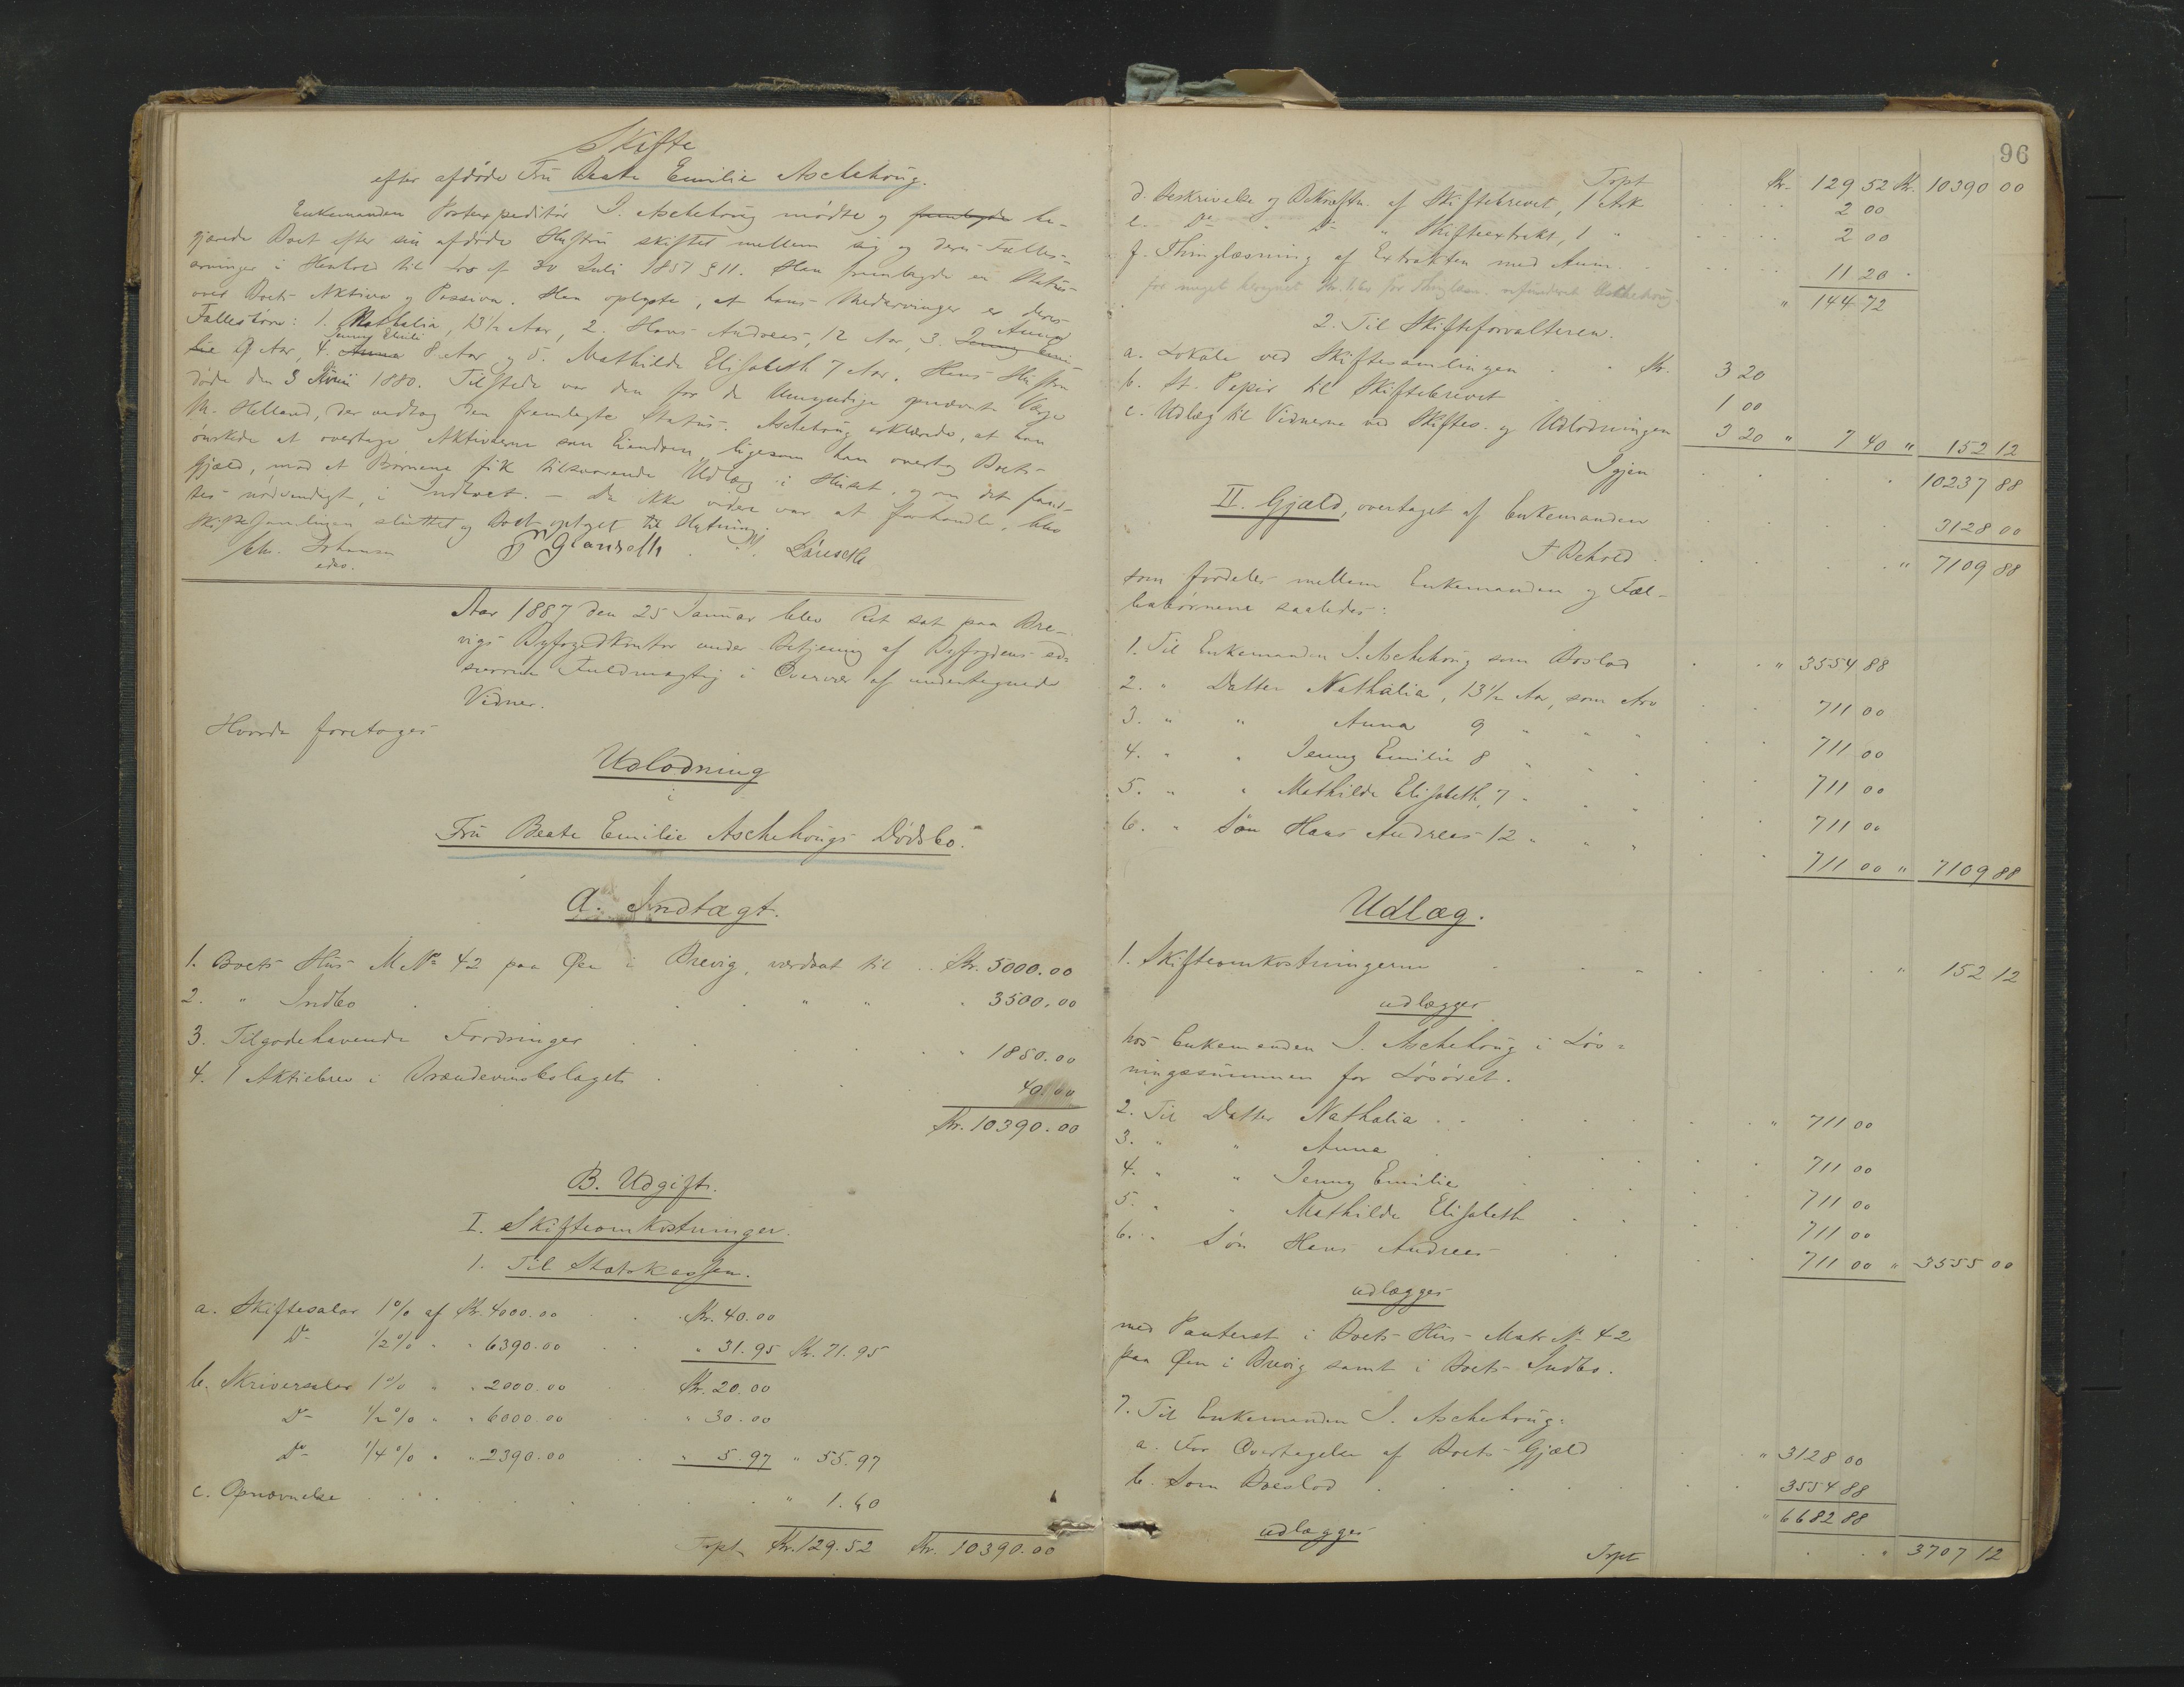 Skifte
efter afdøde Fru Beate Emilie Aschehoug.
Enkemanden Postexpeditør J. Aschehoug mødte og fremlagde be-
gjærede Boet efter sin afdøde Hustru skiftet mellem sig og deres Fælles-
arvinger i Henhold til Lov af 30 Juli 1857 § 11. Han fremlagde en Status
over Boets Aktiva og Passiva. Han oplyste, at hans Medarvinger er deres
Fællesbørn: 1. Nathalia, 13½ Aar, 2. Hans Andreas, 12 Aar, 3. Jenny Emi- Anna
lie 9 Aar, 4. Anna Jenny Emilie 8 Aar og 5. Mathilde Elisabeth 7 Aar. Hans Hustru
døde den 3 Juni 1880. Tilstede var den for de Umyndige opnævnte Værge
M. Helland, der vedtog den fremlagte Status. Aschehoug erklærede, at han
ønskede at overtage Aktiverne som Eiendom, ligesom han overtog Boets
Gjæld, mod at Børnene fik tilsvarende Udlæg i Huset, og om det fand-
tes nødvendigt, i Indboet. — Da ikke videre var at forhandle, blev
Skiftesamlingen sluttet og Boet optaget til Slutning.
Chr. Johansen
edsv.
Aar 1887 den 25 Januar blev Ret sat paa Bre-
vigs Byfogedkontor under Betjening af Byfogdens ed-
svorne Fuldmægtig i Overvær af undertegnede
Vidner.
Hvorda foretoges
Udlodning
i
Fru Beate Emilie Aschehougs Dødsbo.
A. Indtægt.
1. Boets Hus M.No 42 paa Øen i Brevig, værdsat til .. Kr. 5000.00
2. " Indbo . . . " " " 3500.00
3. Tilgodehavende Fordringer . . . " 1850.00
4. 1 Aktiebrev i Brændevinsbolaget . . . 40.00
Kr. 10390.00
B. Udgift.
I. Skifteomkostninger.
1. Til Statskassen.
a. Skiftesalær 1% af Kr. 4000.00 . . Kr. 40.00
Do ½% " " 6390.00 . . " 31.95 Kr. 71.95
b. Skriversalær 1% " " 2000.00 . . Kr. 20.00
Do ½% " " 6000.00 . . " 30.00
Do ¼% " " 2390.00 . . " 5.97 " 55.97
c. Opnævnelse . . . " 1.60
Trpt Kr. 129.52 Kr. 10390.00
96
Trpt Kr. 129 52 Kr. 10390 00
d. Beskrivelse og Bekræftn. af Skiftebrevet, 1 Ark . . . 2 00
e. Do " Do " Skifteextrakt, 1 " . . . 2 00
f. Thinglæsning af Extrakten med Anm. . . . 11 20
" 144 72
2. Til Skifteforvalteren.
a. Lokale ved Skiftesamlingen . " Kr. 3 20
b. St. Papir til Skiftebrevet . . 1 00
c. Udlæg til Vidnerne ved Skiftes. og Udlodningen 3 20 " 7 40 " 152 12
Igjen . . . 10237 88
II. Gjæld, overtaget af Enkemanden . . . 3128 00
I Behold . . . " 7109 88
som fordeles mellem Enkemanden og Fæl-
lesbørnene saaledes:
1. Til Enkemanden J. Aschehoug som Boslod . . " 3554 88
2. " Datter Nathalia, 13½ Aar, som Arv . . 711 00
3. " " Anna 9 " " " . . 711 00
4. " " Jenny Emilie 8 " " " . . 711 00
5. " " Mathilde Elisabeth, 7 " " " 711 00
6. " Søn Hans Andreas 12 " " " . . 711 00 " 7109 88
Udlæg.
1. Skifteomkostningerne . . . " 152 12
udlægges
hos Enkemanden J. Aschehoug i Løs-
ningssummen for Løsøret.
2. Til Datter Nathalia . . . " 711 00
3. " " Anna . . . 711 00
4. " " Jenny Emilie . . . 711 00
5. " " Mathilde Elisabeth . . . 711 00
6. " Søn Hans Andreas . . . 711 00 " 3555 00
udlægges
med Panteret i Boets Hus Matr No 42
paa Øen i Brevig samt i Boets Indbo.
7. Til Enkemanden J. Aschehoug:
a. For Overtagelse af Boets Gjæld . " 3128 00
b. Som Boeslod . . . 3554 88
" 6682 88
udlægges
Trpt . . " 3707 12